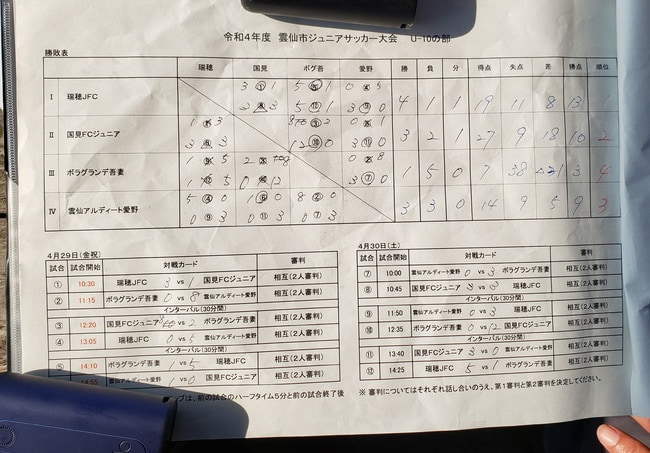 令和4年度 雲仙市ジュニアサッカー大会 U-10の部
勝敗表
瑞穂 国見 ボグ吾 愛野 勝 負 分 得点 失点 差 勝点 順位
Ⅰ 瑞穂JFC 3 ① 1 5 ⑤ 1 0 ④ 5
3 ⑧ 3 5 ⑫ 1 3 ⑨ 0 4 1 1 19 11 8 13 1
Ⅱ 国見FCジュニア 1 ① 3 ③ 2 0 ⑥ 1
3 ⑧ 3 12 ⑩ 0 3 ⑪ 0 3 2 1 27 9 18 10 2
Ⅲ ボラグランデ吾妻 1 ⑤ 5 2 ③ 0 ② 8
1 ⑫ 5 0 ⑩ 12 3 ⑦ 0 1 5 0 7 38 3 4
Ⅳ 雲仙アルディート愛野 5 ④ 0 1 ⑥ 0 8 ② 0
0 ⑨ 3 0 ⑪ 3 0 ⑦ 3 3 3 0 14 9 5 9 3
4月29日(金祝)
試合 試合開始 対戦カード 審判
① 10:30 瑞穂JFC 3 vs 1 国見FCジュニア 相互(2人審判)
② 11:15 ボラグランデ吾妻 0 vs 8 雲仙アルディート愛野 相互(2人審判)
インターバル(30分間)
③ 12:20 国見FCジュニア vs 2 ボラグランデ吾妻 相互(2人審判)
④ 13:05 瑞穂JFC 0 vs 5 雲仙アルディート愛野 相互(2人審判)
インターバル(30分間)
⑤ 14:10 ボラグランデ吾妻 1 vs 5 瑞穂JFC 相互(2人審判)
14:55 雲仙アルディート愛野 1 vs 0 国見FCジュニア 相互(2人審判)
4月30日(土)
試合 試合開始 対戦カード 審判
⑦ 10:00 雲仙アルディート愛野 0 vs 3 ボラグランデ吾妻 相互(2人審判)
⑧ 10:45 国見FCジュニア 3 vs 3 瑞穂JFC 相互(2人審判)
インターバル(30分間)
⑨ 11:50 雲仙アルディート愛野 0 vs 3 瑞穂JFC 相互(2人審判)
⑩ 12:35 ボラグランデ吾妻 0 vs 12 国見FCジュニア 相互(2人審判)
インターバル(30分間)
⑪ 13:40 国見FCジュニア 3 vs 0 雲仙アルディート愛野 相互(2人審判)
⑫ 14:25 瑞穂JFC 5 vs 1 ボラグランデ吾妻 相互(2人審判)
ップは、前の試合のハーフタイム5分と前の試合終了後
※ 審判についてはそれぞれ話し合いのうえ、第1審判と第2審判を決定してください。